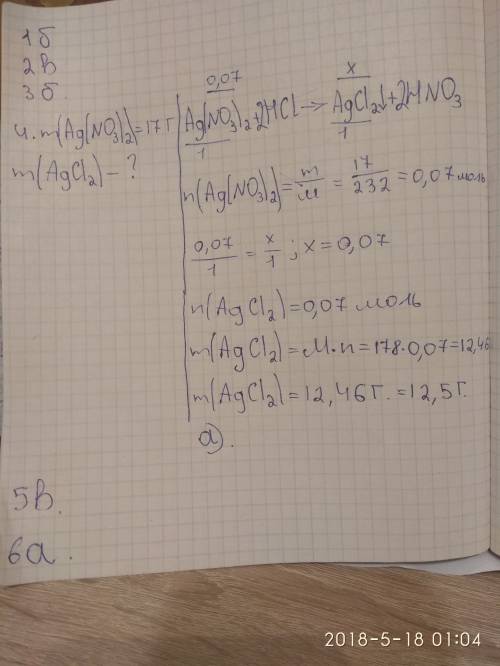 1б
2в
3б.
4. m(Ag(NO₃)₂)=17 г
m(AgCl₂) - ?
0,07 x
Ag(NO₃)₂+2HCl → AgCl₂↓+2HNO₃
1 1
n(Ag(NO₃)₂)= m/M = 17/232 = 0,07 моль
0,07/1 = x/1 ; x=0,07
n(AgCl₂)=0,07 моль
m(AgCl₂)=M·n=178·0,07=12,46
m(AgCl₂)=12,46 г. =12,5 г.
а).
5в.
6а.
2018-5-18 01:04